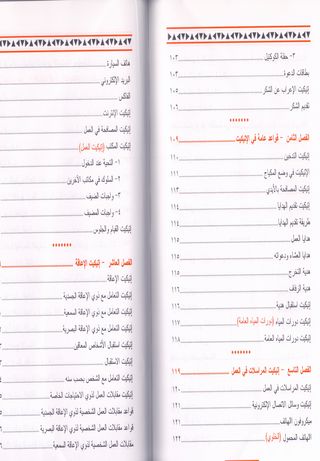 ٣- حفلة الكوكتيل ١٠٣
بطاقات الدعوة ١٠٤
إتيكيت الإعراب عن الشكر ١٠٥
تقديم الشكر ١٠٦
الفصل الثامن - قواعد عامة في الإتيكيت ١٠٩
إتيكيت التدخين ١١٠
الإتيكيت في وضع المكياج ١١١
إتيكيت المصافحة بالأيدي ١١٣
إتيكيت تقديم الهدايا ١١٤
طريقة تقديم الهدايا ١١٤
هدايا العمل ١١٤
هدايا العشاء ودعواته ١١٥
هدية التخرج ١١٥
هدية الزفاف ١١٦
إتيكيت استقبال هدية ١١٦
إتيكيت دورات المياه (دورات المياه العامة) ١١٧
إتيكيت دورات المياه العامة ١١٨
الفصل التاسع - إتيكيت المراسلات في العمل ١١٩
إتيكيت المراسلات في العمل ١٢٠
إتيكيت وسائل الاتصال الإلكترونية ١٢١
ميكروفون الهاتف ١٢١
الهاتف المحمول (الخلوي) ١٢٢
هاتف السيارة
البريد الإلكتروني
الفاكس
إتيكيت الإنترنت
إتيكيت المصافحة في العمل
إتيكيت المكتب (إتيكيت العمل)
١- التحية عند الدخول
٢- السلوك في مكاتب الآخرين
٣- واجبات الضيف
٤- واجبات المضيف
إتيكيت القيام والجلوس
الفصل العاشر - إتيكيت الإعاقة
إتيكيت الإعاقة
إتيكيت التعامل مع ذوي الإعاقة الجسدية
إتيكيت التعامل مع ذوي الإعاقة السمعية
إتيكيت التعامل مع ذوي الإعاقة البصرية
إتيكيت استقبال الأشخاص المعاقين
إتيكيت الاستقبال
إتيكيت التعامل مع الشخص بحسب سنه
إتيكيت مقابلات العمل لذوي الاحتياجات الخاصة
قواعد مقابلات العمل الشخصية لذوي الإعاقة الجسدية
قواعد مقابلات العمل الشخصية لذوي الإعاقة البصرية
مقابلات العمل الشخصية لذوي الإعاقة السمعية